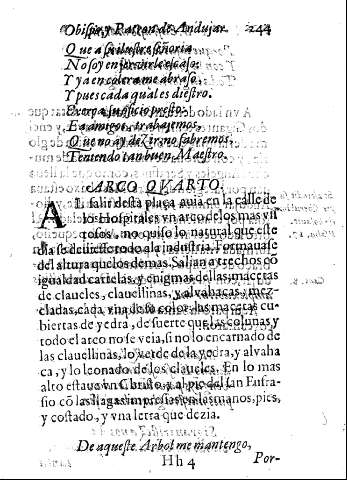 Obispo y Patron de Andujar. 244
Que a su ilustre señoria
No soy en seruirle escaso:
Y ya en colera me abraso,
Y pues cada qual es diestro.
Exerça su oficio presto:
Ea amigos, trabajemos
Que no ay dezir no sabremos,
Teniendo tan buen Maestro.
ARCO QVARTO.
AL salir desta plaça auia, en la calle de
los Hospitales vn arco de los mas vis
tosos, no quiso lo natural que este
dia se deuiesse todo a la industria. Formauase
del altura que los demas. Salian a trechos cō
igualdad cartelas, y enigmas de las macetas
de claueles, clauellinas, y alvahacas, mez
cladas, cada vna de su color, las macetas cu-
biertas de yedra, de suerte que las colunas y
todo el arco no se veia, si no lo encarnado de
las clauellinas, lo verde de la yedra, y alvaha
ca, y lo leonado de los claueles. En lo mas
alto estaua vn Christo, y al pie del san Eufra-
sio cō las llagas impresas en las manos, pies,
y costado, y vna letra que dezia.
De aqueste Arbol me mantengo,
Hh 4 Por-